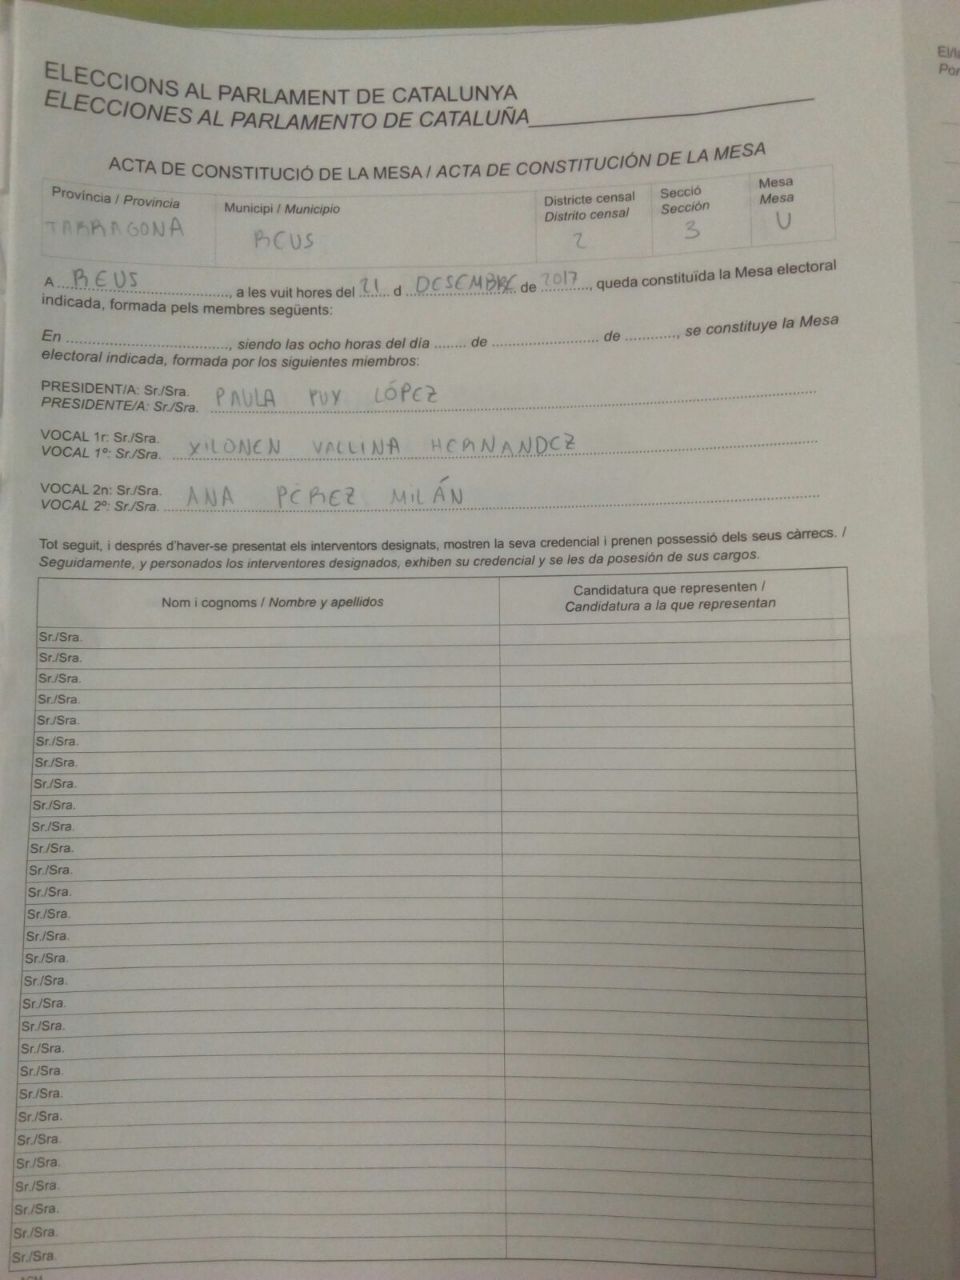 ELECCIONS AL PARLAMENT DE CATALUNYA
ELECCIONES AL PARLAMENTO DE CATALUÑA
ACTA DE CONSTITUCIÓ DE LA MESA / ACTA DE CONSTITUCIÓN DE LA MESA
Província / Provincia
TARRAGONA
Municipi / Municipio
REUS
Districte censal
Distrito censal
2
Secció
Sección
3
Mesa
Mesa
U
A REUS, a les vuit hores del 21 d DESEMBRE de 2017, queda constituïda la Mesa electoral
indicada, formada pels membres següents:
En ............................., siendo las ocho horas del día ........ de ............................ de ............., se constituye la Mesa
electoral indicada, formada por los siguientes miembros:
PRESIDENT/A: Sr./Sra.
PRESIDENTE/A: Sr./Sra. PAULA PUY LÓPEZ
VOCAL 1r: Sr./Sra.
VOCAL 1º: Sr./Sra. XILONEN VALLINA HERNANDEZ
VOCAL 2n: Sr./Sra.
VOCAL 2º: Sr./Sra. ANA PÉREZ MILÁN
Tot seguit, i després d'haver-se presentat els interventors designats, mostren la seva credencial i prenen possessió dels seus càrrecs. /
Seguidamente, y personados los interventores designados, exhiben su credencial y se les da posesión de sus cargos.
Nom i cognoms / Nombre y apellidos
Candidatura que representen /
Candidatura a la que representan
Sr./Sra.
Sr./Sra.
Sr./Sra.
Sr./Sra.
Sr./Sra.
Sr./Sra.
Sr./Sra.
Sr./Sra.
Sr./Sra.
Sr./Sra.
Sr./Sra.
Sr./Sra.
Sr./Sra.
Sr./Sra.
Sr./Sra.
Sr./Sra.
Sr./Sra.
Sr./Sra.
Sr./Sra.
Sr./Sra.
Sr./Sra.
Sr./Sra.
Sr./Sra.
Sr./Sra.
Sr./Sra.
Sr./Sra.
Sr./Sra.
Sr./Sra.
Sr./Sra.